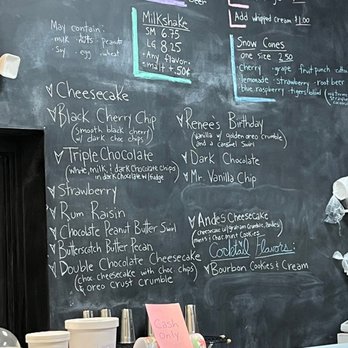 May contain:
milk nuts peanuts
soy egg wheat
Milkshake
SM 6.75
LG 8.25
Any flavor
malt + 50¢
Add whipped cream $1.00
Snow Cones
one size 2.50
Cherry grape fruit punch cotton
lemonade strawberry root beer
blue raspberry tigers blood
Cheesecake
Black Cherry Chip
(smooth black cherry
w/ dark choc chips)
Triple Chocolate
(white, milk, & dark chocolate chips
in dark chocolate w/ fudge)
Strawberry
Rum Raisin
Chocolate Peanut Butter Swirl
Butterscotch Butter Pecan
Double Chocolate Cheesecake
(choc cheesecake with choc chips
& oreo crust crumble)
Renee's Birthday
(vanilla w/ golden oreo crumble
and a caramel swirl)
Dark Chocolate
Mr. Vanilla Chip
Andes Cheesecake
(cheesecake w/ graham crumble, Andes
mints & choc mint cookies)
Cocktail Flavors:
Bourbon Cookies & Cream
Cash
Only